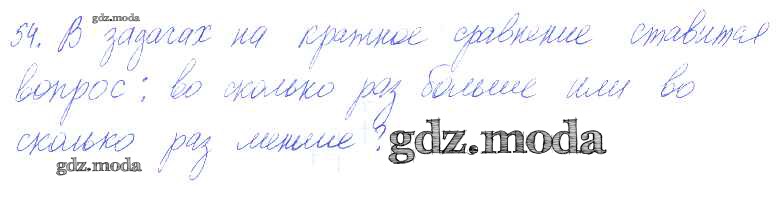 gdz.moda
54. В задачах на кратное сравнение ставится
вопрос: во сколько раз больше или во
сколько раз меньше?
gdz.moda
gdz.moda